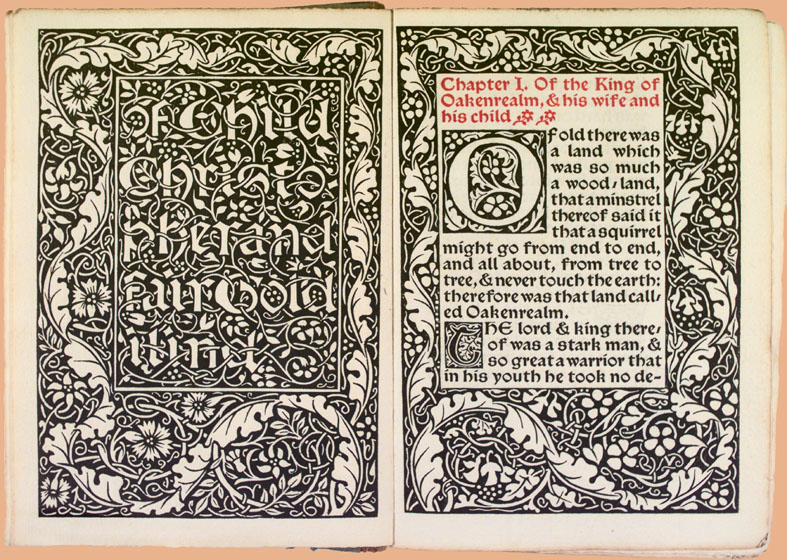 Of Child
Christo-
pher and
Fair Gold
ilind
Chapter I. Of the King of
Oakenrealm, & his wife and
his child
Of old there was
a land which
was so much
a wood-land,
that a minstrel
thereof said it
that a squirrel
might go from end to end,
and all about, from tree to
tree, & never touch the earth:
therefore was that land call-
ed Oakenrealm.
THE lord & king there-
of was a stark man, &
so great a warrior that
in his youth he took no de-